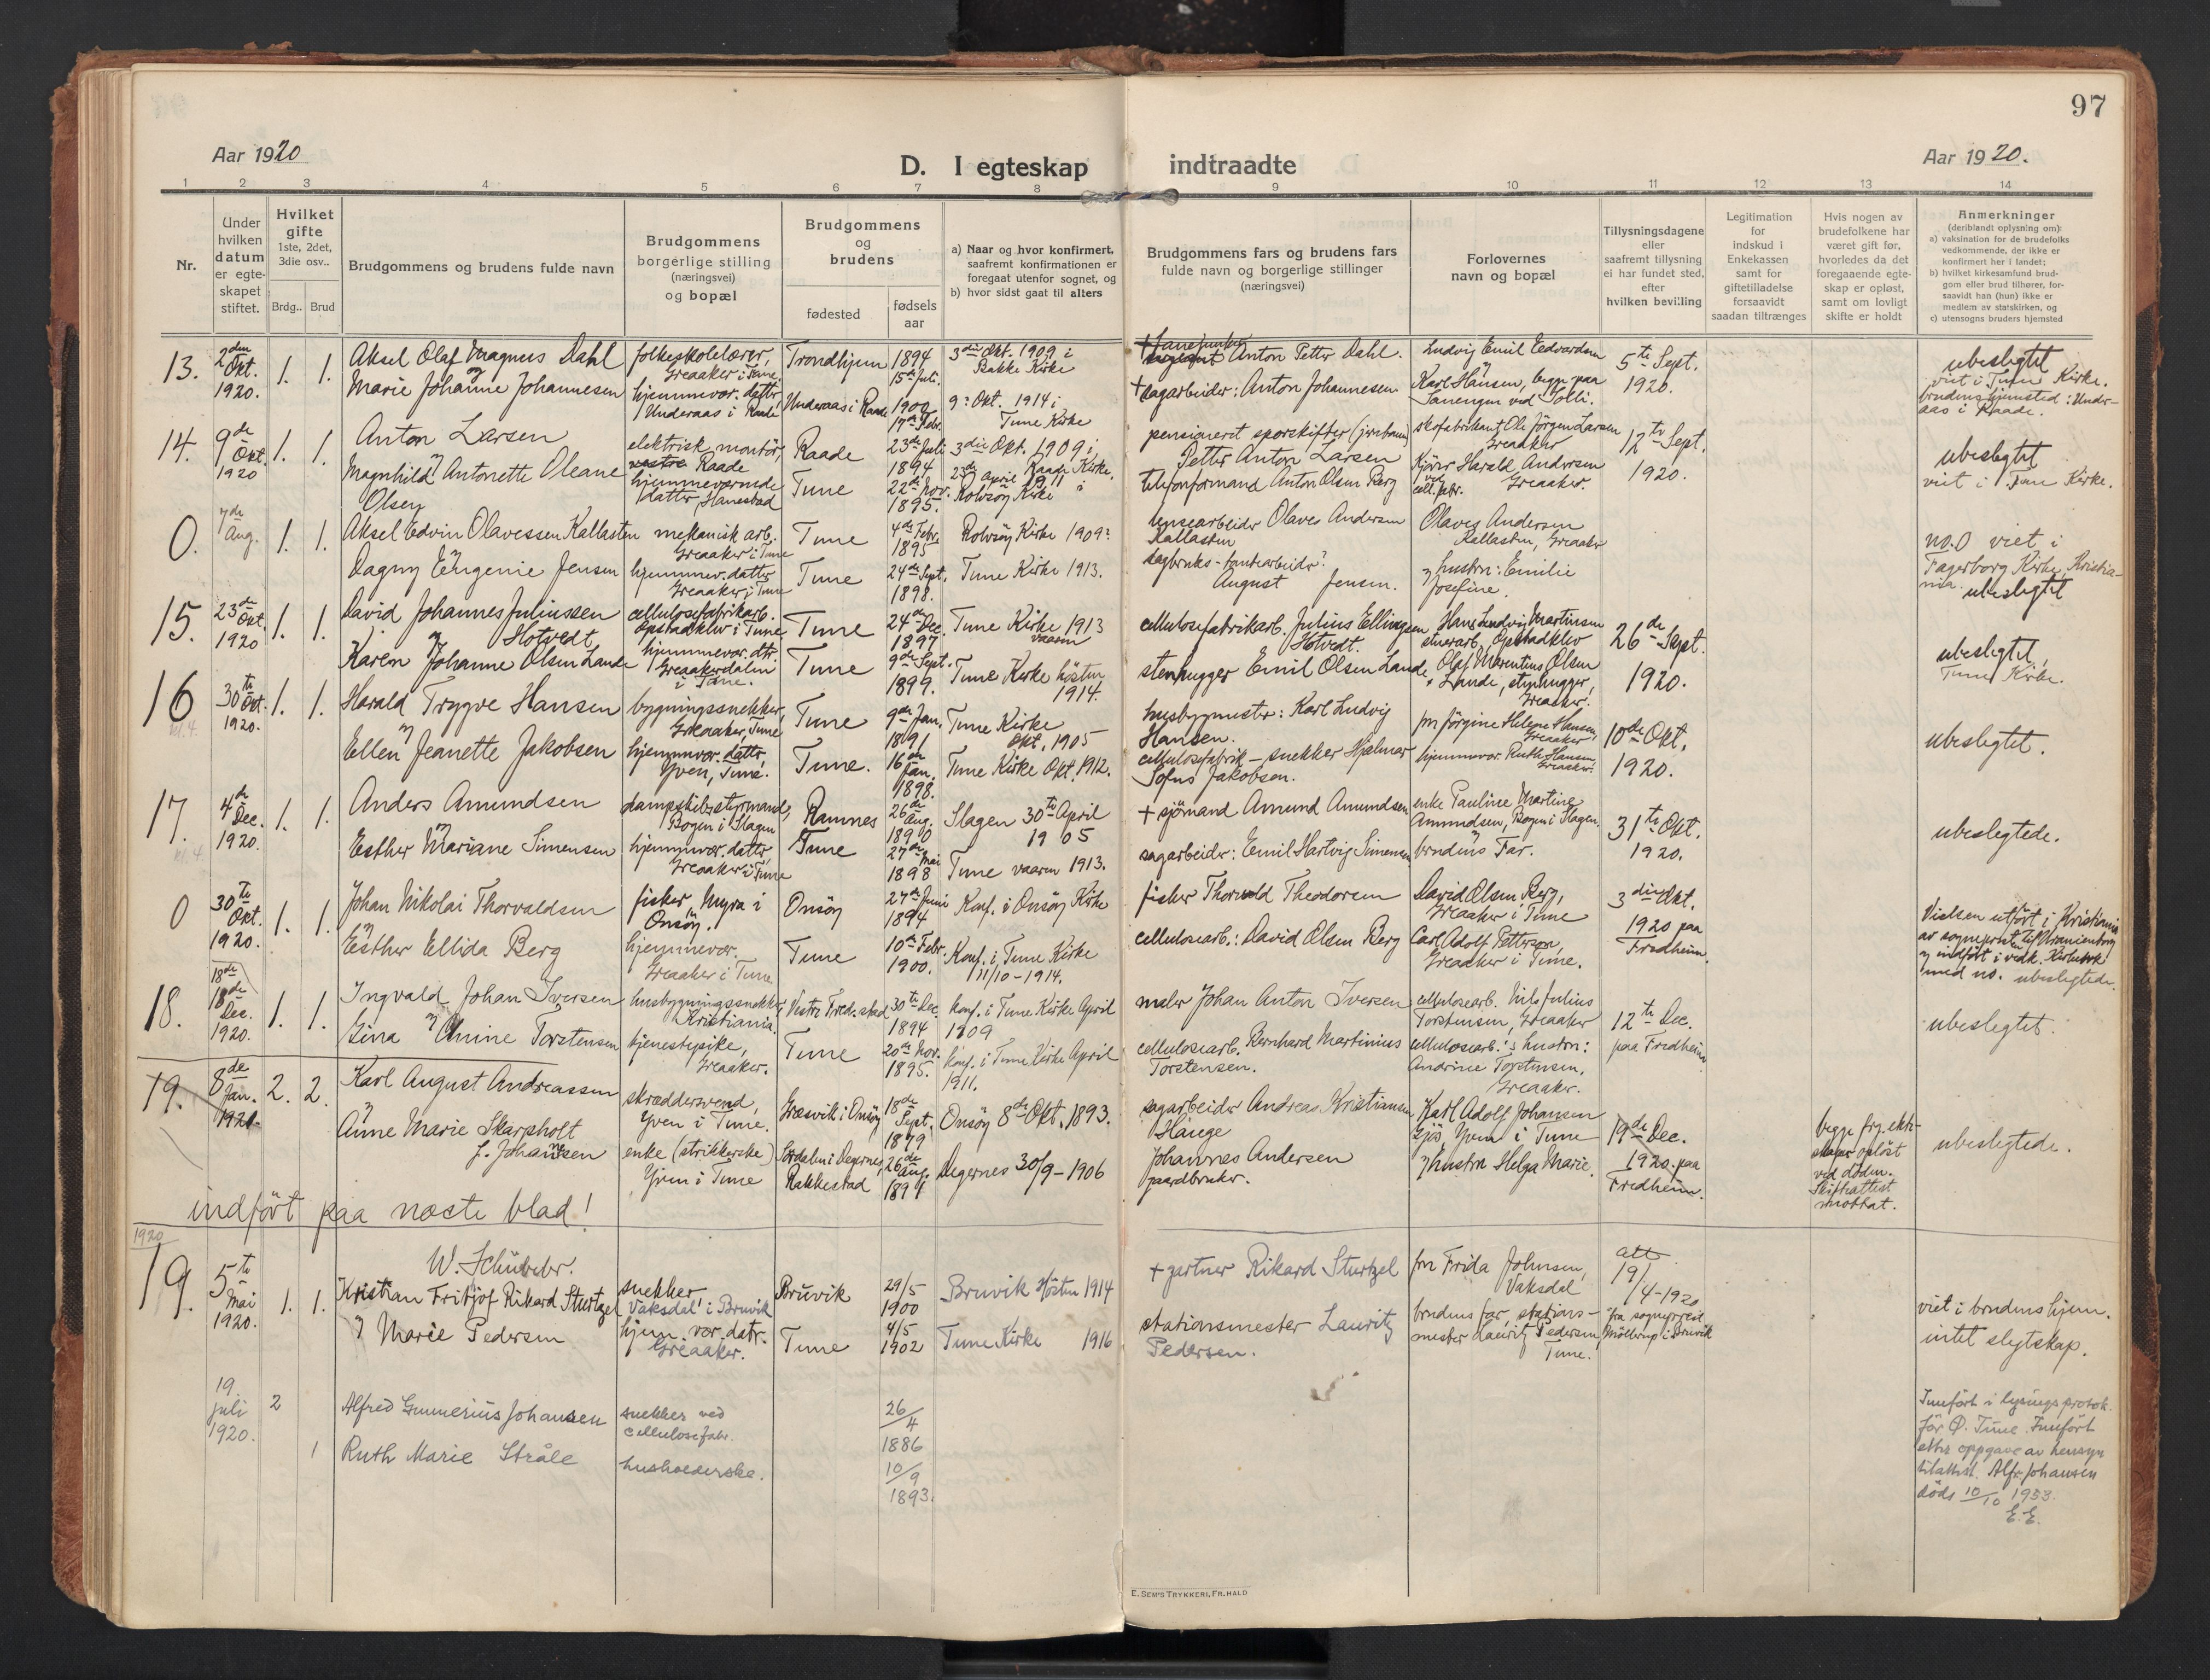 97
Aar 1920
D. I egteskap indtraadte
Aar 1920.
1 2 3 4 5 6 7 8 9 10 11 12 13 14
Nr.
Under hvilken datum er egteskapet stiftet.
Hvilket gifte
1ste, 2det, 3die osv..
Brdg.. Brud
Brudgommens og brudens fulde navn
Brudgommens borgerlige stilling (næringsvei) og bopæl
Brudgommens og brudens
fødested
fødsels aar
a) Naar og hvor konfirmert, saafremt konfirmationen er foregaat utenfor sognet, og
b) hvor sidst gaat til alters
Brudgommens fars og brudens fars fulde navn og borgerlige stillinger (næringsvei)
Forlovernes navn og bopæl
Tillysningsdagene eller saafremt tillysning ei har fundet sted, efter hvilken bevilling
Legitimation for indskud i Enkekassen samt for giftetilladelse forsaavidt saadan tiltrænges
Hvis nogen av brudefolkene har været gift før, hvorledes da det foregaaende egteskap er opløst, samt om lovligt skifte er holdt
Anmerkninger (deriblandt oplysning om):
a) vaksination for de brudefolks vedkommende, der ikke er konfirmert her i landet;
b) hvilket kirkesamfund brudgom eller brud tilhører, forsaavidt han (hun) ikke er medlem av statskirken, og
c) utensogns bruders hjemsted
13. 2den Okt. 1920. 1. 1.
Aksel Olaf Magnus Dahl
folkeskolelærer, Greaaker i Tune
Trondhjem 1894 15de Juli
3die Okt. 1909 i Bakke Kirke
Anton Petter Dahl.
Ludvig Emil Eedvardsen
5te Sept. 1920.
og Marie Johanne Johannesen
hjemmevær. datter, Underaas i Raade
Underaas i Raade 1900 17de Febr.
9: Okt. 1914 i Tune Kirke
+ sagarbeider: Anton Johannesen
Karl Hansen, begge paa Tanengen ved Solli.
ubeslegtet
viet i Tune Kirke.
brudens hjemsted: Underaas i Raade.
14. 9de Okt. 1920 1. 1.
Anton Larsen
elektrisk montör, Raade
Raade 23de Juli 1894
3die Okt. 1909 i Raade Kirke.
pensioneret sporskifter
Petter Anton Larsen
skofabrikant Ole Jörgen Larsen Greaaker
12te Sept. 1920.
og Magnhild Antonette Oleane Olsen
hjemmeværende datter, Hanestad
Tune 22de Nov. 1895.
23de April 1911 i Rolvsöy Kirke
telefonformand Anton Olsen Berg
Kjörer Harald Andersen ved cell.fabr. Greaaker.
ubeslegtet
viet i Tune Kirke.
0. 7de Aug. 1. 1.
Aksel Edvin Olavessen Kallasten
mekanisk arb. Greaaker i Tune
Tune 4de Febr. 1895
Rolvsöy Kirke 1909?
lensearbeider Olaves Andersen Kallasten
Olaves Andersen Kallasten, Greaaker
og Dagny Eugenie Jensen
hjemmev. datter Greaaker i Tune
Tune 24de Sept. 1898.
Tune Kirke 1913.
August Jensen.
og hustru: Emilie Josefine.
no. 0 viet i Fagerborg Kirke, Kristiania. ubeslegtet
15. 23de Okt. 1920 1. 1.
David Johannes Juliussen Hotvedt
cellulosefabrikarb. Opstadklev i Tune
Tune 24de Dec. 1897
Tune Kirke 1913 vaaren
cellulosefabrikarb. Julius Ellingsen Hotvedt.
Hans Ludvig Martinsen stuerarb., Opstadklev
26de Sept. 1920.
og Karen Johanne Olsen Lande
hjemmevær. dtr. Greaakerdalen i Tune.
Tune 9de Sept. 1899.
Tune Kirke hösten 1914.
stenhugger Emil Olsen Lande
Olaf Marentius Olsen Lande, stenhugger, Greaaker.
ubeslegtet,
Tune Kirke.
16 30te Okt. 1920. 1. 1.
Harald Trygve Hansen
bygningssnekker, Greaaker, Tune
Tune 9de Jan. 1891
Tune Kirke Okt. 1905
husbygmester: Karl Ludvig Hansen.
fru Jörgine Helene Hansen, Greaaker
10de Okt. 1920.
og Ellen Jeanette Jakobsen
hjemmevær. datter, Yven, Tune.
Tune. 16de Jan. 1898.
Tune Kirke Okt. 1912.
cellulosefabrik-snekker Hjalmar Sofus Jakobsen.
hjemmevær. Ruth Hansen, Greaaker.
ubeslegtet.
17. 4de Dec. 1920. 1. 1.
Anders Amundsen
dampskibsstyrmand, Bogen i Slagen
Ramnes 26de Aug. 1890
Slagen 30te April 1905
+ sjömand Amund Amundsen
enke Pauline Martine Amundsen, Bogen i Slagen.
31te Okt. 1920.
og Esther Mariane Simensen
hjemmevær. datter Greaaker i Tune
Tune 27de Mai 1898
Tune vaaren 1913.
sagarbeider: Emil Hartvig Simensen
og brudens Far.
ubeslegtede.
0 30te Okt. 1920. 1. 1.
Johan Nikolai Thorvaldsen
fisker, Myra i Onsöy.
Onsöy 27de Juni 1894
Konf. i Onsöy Kirke
fisker Thorvald Theodorsen
David Olsen Berg, Greaaker i Tune
3die Okt. 1920 paa Fredheim
og Esther Ellida Berg
hjemmevær. Greaaker i Tune
Tune 10de Febr. 1900.
Konf. i Tune Kirke 11/10-1914.
cellulosearb.: David Olsen Berg
Carl Adolf Petterson, Greaaker i Tune.
Vielsen utfört i Kristiania av sognepresten til Uranienborg og indfört i vedk. Kirkebok med no. ubeslegtede.
18de
18. 18de Dec. 1920. 1. 1.
Ingvald Johan Iversen
husbygningssnekker, Kristiania.
Vestre Fred.stad 30te Dec. 1894
konf. i Tune Kirke April 1909
maler Johan Anton Iversen
cellulosearb. Nils Julius Torstensen, Greaaker
12te Dec. paa Fredheim
og Gina Amine Torstensen
tjenestepike, Greaaker.
Tune 20de Nov. 1895.
konf. i Tune Kirke April 1911.
cellulosearb. Bernhard Martinius Torstensen.
cellulosearb.'s hustru: Andrine Torstensen, Greaaker.
ubeslegtet.
19. 8de Jan. 1921. 2. 2.
Karl August Andreassen
skræddersvend, Yven i Tune.
Græsvik i Onsöy 18de Sept. 1879
Onsöy 8de Okt. 1893.
sagarbeider Andreas Kristiansen Hauge
Karl Adolf Johansen Gjös, Yven i Tune
19de Dec. 1920. paa Fredheim.
og Anne Marie Skarpholt f. Johansen
enke (strikkerske) Yven i Tune
Sördalen i Degernes, Rakkestad 26de Aug. 1891
Degernes 30/9-1906
Johannes Andersen gaardbruker.
og hustru Helga Marie.
begge frg. ekteskaper oplöst ved döden. Skifteattest mottat.
ubeslegtede.
indfört paa næste blad!
1920
19. 5te Mai 1920. 1. 1.
Kristian Fritjof Rikard Sturtzel
snekker, Vaksdal i Bruvik
Bruvik 29/5 1900
Bruvik Hösten 1914
+ gartner Rikard Sturtzel
fru Frida Johnsen, Vaksdal
att. 19/4-1920 fra sogneprest Möllerup i Bruvik
og Marie Pedersen
hjem.vær. datr. Greaaker.
Tune 4/5 1902
Tune Kirke 1916
stationsmester Lauritz Pedersen.
brudens far, stationsmester Lauritz Pedersen, Tune.
viet i brudens hjem.
intet slegtskap.
19 juli 1920. 2
Alfred Gunnerius Johansen
snekker ved cellulosefabr.
26/4 1886
1
Ruth Marie Stråle
husholderske.
10/9 1893.
Innfört i lysingsprotok. för Ø. Tune. Innfört etter oppgave av hensyn til attest. Alfr. Johansen döde 10/10 1953.
E.E.
E. SEM'S TRYKKERI, FR.HALD